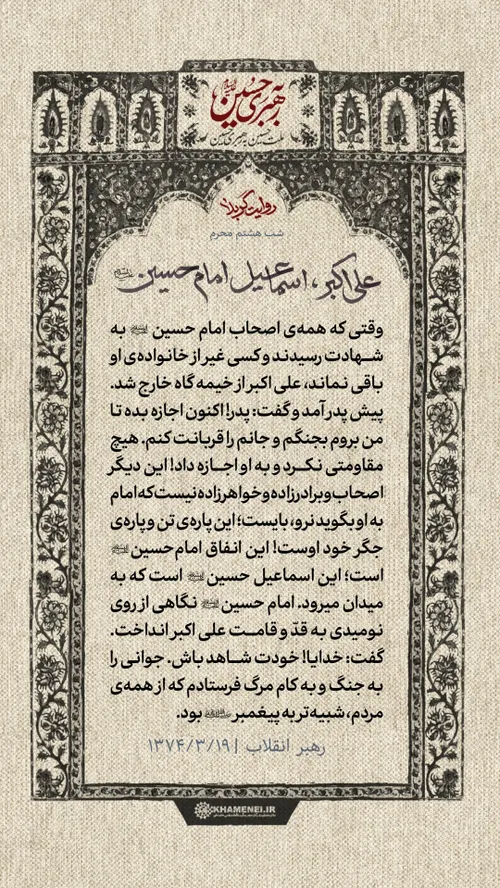 به رهبری حسین علیه‌السلام
ملت حسین به رهبری حسین
روایت کربلا
شب هشتم محرم
علی اکبر، اسماعیل امام حسین علیه‌السلام
وقتی که همه‌ی اصحاب امام حسین علیه‌السلام به
شهادت رسیدند و کسی غیر از خانواده‌ی او
باقی نماند، علی اکبر از خیمه گاه خارج شد.
پیش پدر آمد و گفت: پدر! اکنون اجازه بده تا
من بروم بجنگم و جانم را قربانت کنم. هیچ
مقاومتی نکرد و به او اجازه داد! این دیگر
اصحاب و برادرزاده و خواهرزاده نیست که امام
به او بگوید نرو، بایست؛ این پاره‌ی تن و پاره‌ی
جگر خود اوست! این انفاق امام حسین علیه‌السلام
است؛ این اسماعیل حسین علیه‌السلام است که به
میدان میرود. امام حسین علیه‌السلام نگاهی از روی
نومیدی به قدّ و قامت علی اکبر انداخت.
گفت: خدایا! خودت شاهد باش. جوانی را
به جنگ و به کام مرگ فرستادم که از همه‌ی
مردم، شبیه‌تر به پیغمبر ﷺ بود.
رهبر انقلاب | ۱۳۷۴/۳/۱۹
KHAMENEI.IR